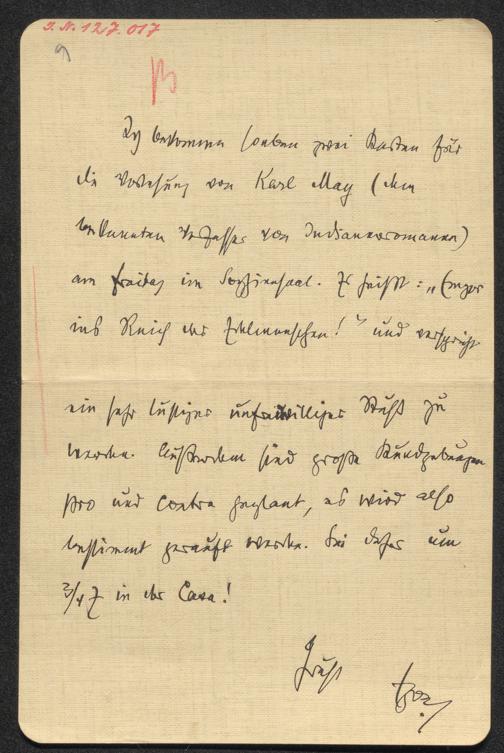 J. N. 127.017
9
Ich bekomme soeben zwei Karten für
die Vorlesung von Karl May (dem
bekannten Verfasser von Indianerromanen)
am Freitag im Sophiensaal. Es heißt: „Empor
ins Reich der Edelmenschen!" und verspricht
ein sehr lustiger unfreiwilliger Ulk zu
werden. Außerdem sind große Kundgebungen
pro und contra geplant, es wird also
bestimmt gerauft werden. Sei daher um
3/4 7 in der Casa!
Gruß